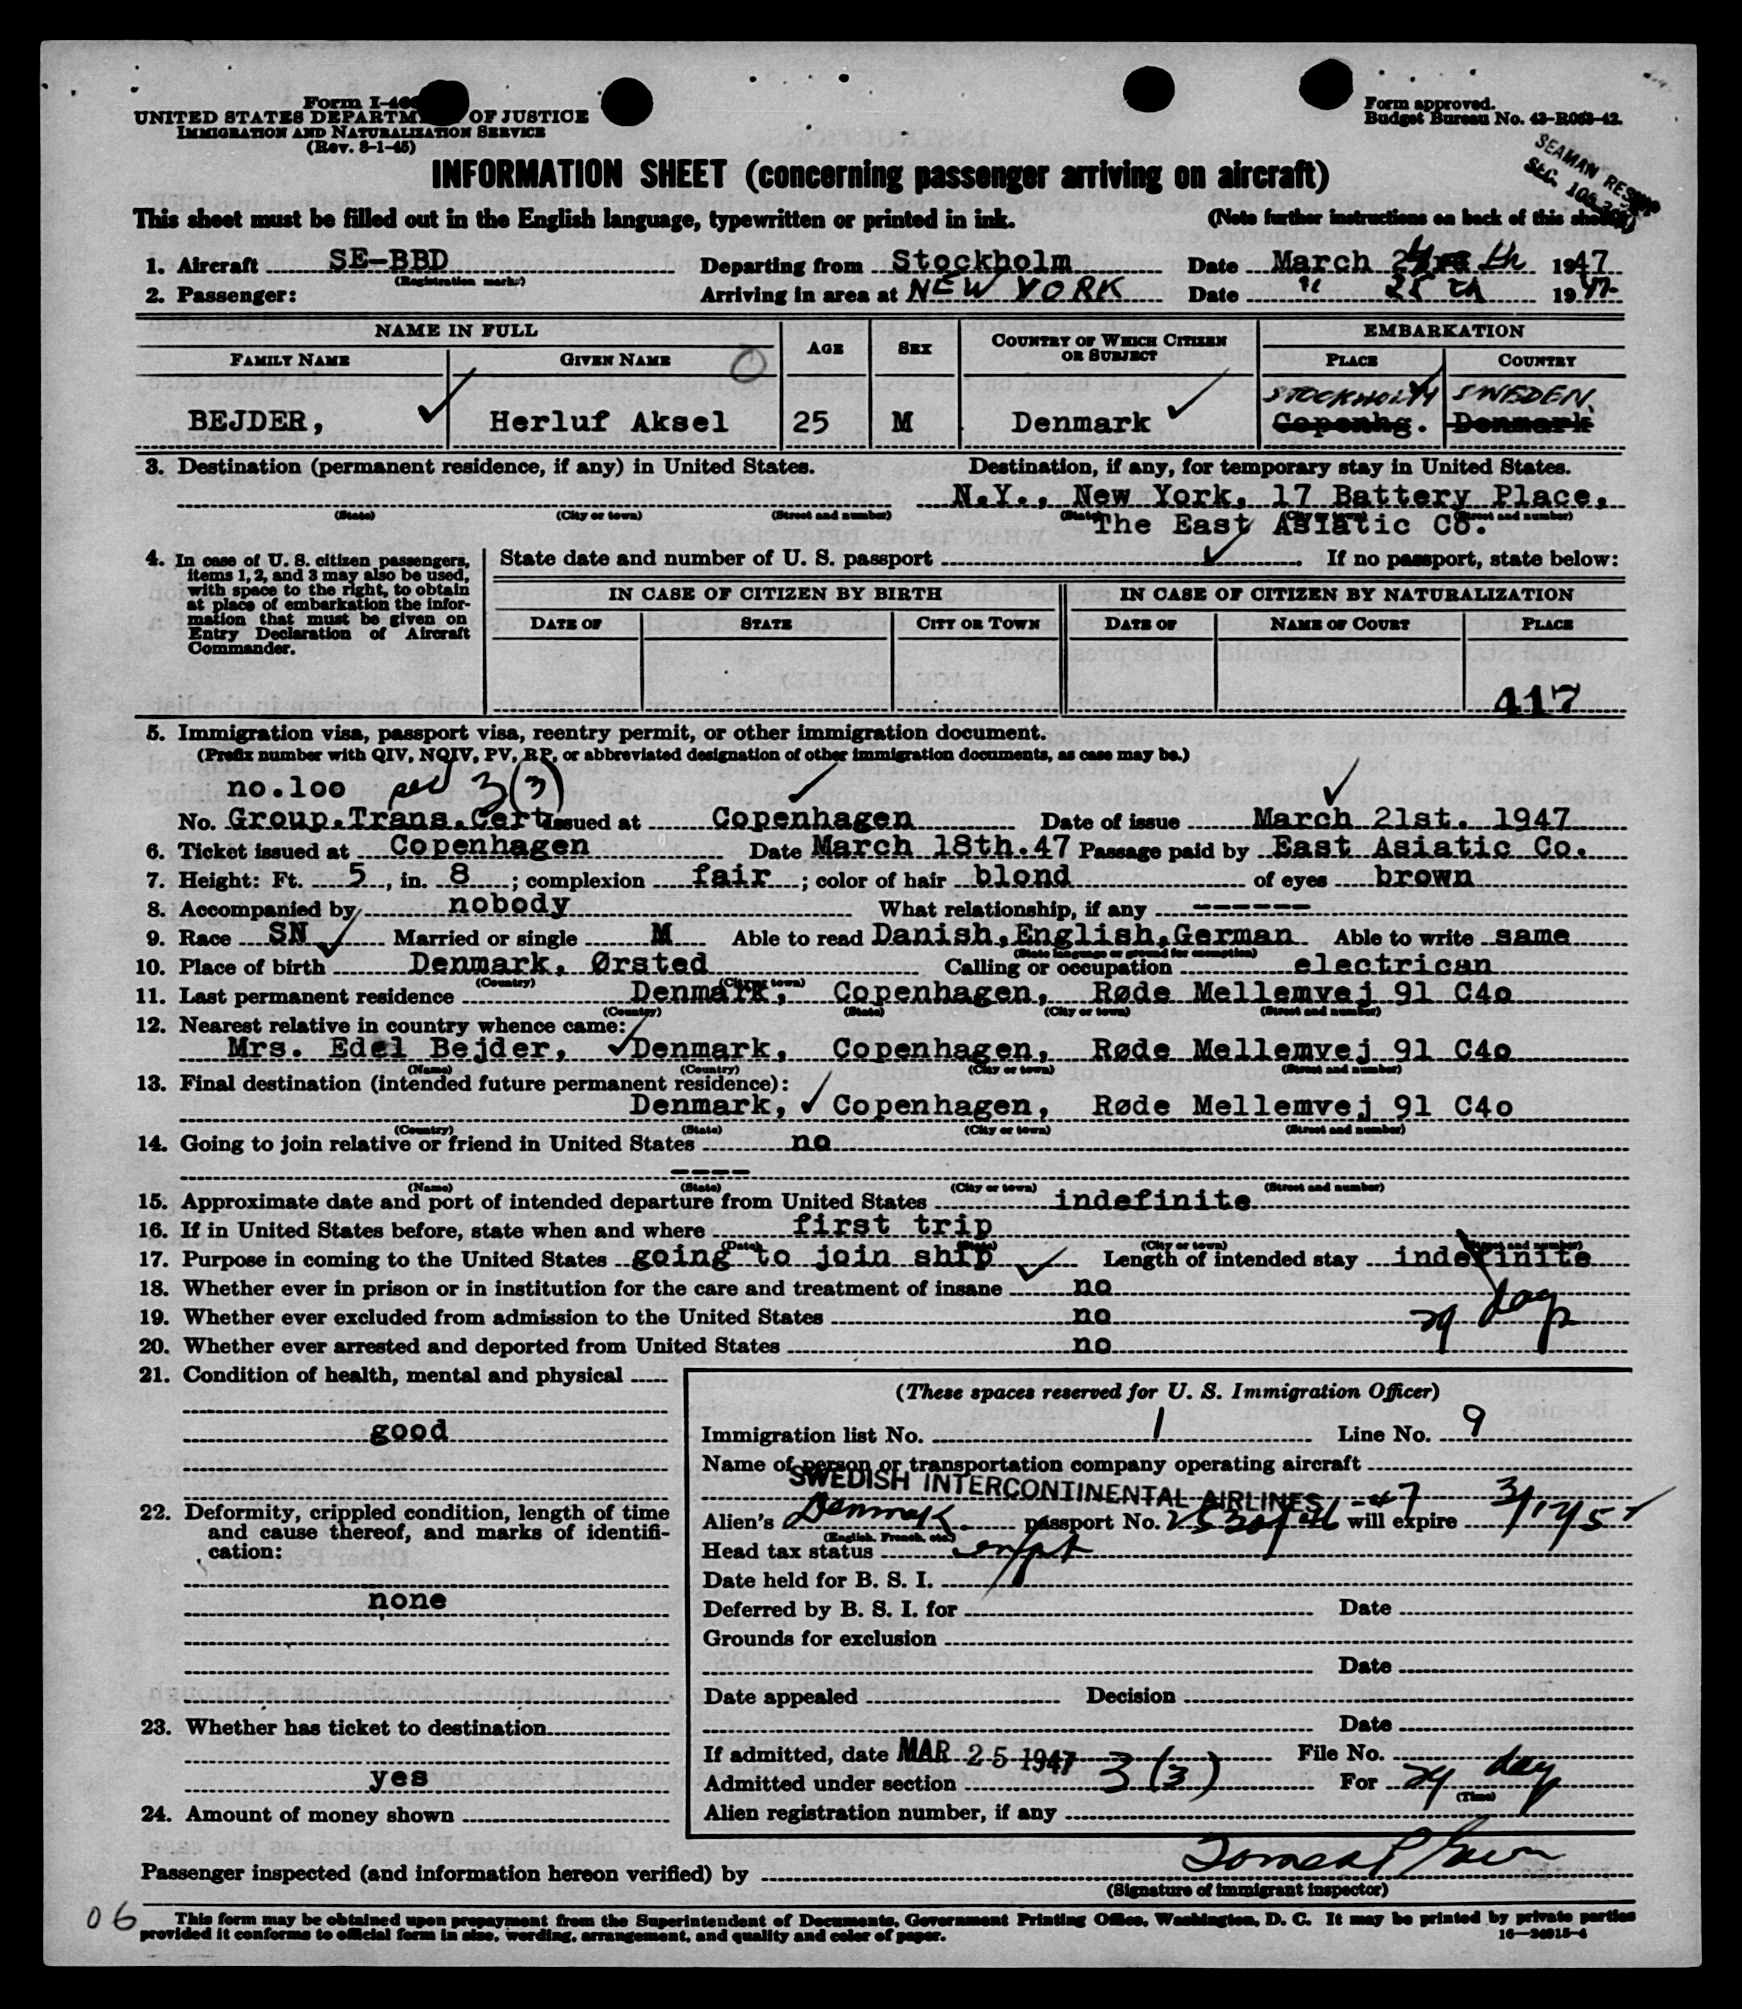 Form I-466
UNITED STATES DEPARTMENT OF JUSTICE
IMMIGRATION AND NATURALIZATION SERVICE
(Rev. 8-1-45)
Form approved.
Budget Bureau No. 43-R063-42.
SEAMAN
SEC.
INFORMATION SHEET (concerning passenger arriving on aircraft)
This sheet must be filled out in the English language, typewritten or printed in ink. (Note further instructions on back of this sheet.)
1. Aircraft SE-BBD Departing from Stockholm Date March 24th 1947
(Registration marks)
2. Passenger: Arriving in area at NEW YORK Date " 25th 1947
NAME IN FULL AGE SEX COUNTRY OF WHICH CITIZEN OR SUBJECT EMBARKATION
FAMILY NAME GIVEN NAME PLACE COUNTRY
STOCKHOLM SWEDEN
BEJDER, Herluf Aksel 25 M Denmark Copenhg. Denmark
3. Destination (permanent residence, if any) in United States. Destination, if any, for temporary stay in United States.
N.Y., New York, 17 Battery Place,
(State) (City or town) (Street and number) (State) (City or town) (Street and number)
The East Asiatic Co.
4. In case of U. S. citizen passengers, items 1, 2, and 3 may also be used, with space to the right, to obtain at place of embarkation the information that must be given on Entry Declaration of Aircraft Commander.
State date and number of U. S. passport If no passport, state below:
IN CASE OF CITIZEN BY BIRTH IN CASE OF CITIZEN BY NATURALIZATION
DATE OF STATE CITY OR TOWN DATE OF NAME OF COURT PLACE
417
5. Immigration visa, passport visa, reentry permit, or other immigration document.
(Prefix number with QIV, NQIV, PV, RP, or abbreviated designation of other immigration documents, as case may be.)
no.1oo sec 3(3)
No. Group.Trans.Cert. Issued at Copenhagen Date of issue March 21st. 1947
6. Ticket issued at Copenhagen Date March 18th.47 Passage paid by East Asiatic Co.
7. Height: Ft. 5, in. 8; complexion fair; color of hair blond of eyes brown
8. Accompanied by nobody What relationship, if any ------
9. Race SN Married or single M Able to read Danish,English,German Able to write same
(State language or ground for exemption)
10. Place of birth Denmark, Ørsted Calling or occupation electrican
(Country) (City or town)
11. Last permanent residence Denmark, Copenhagen, Røde Mellemvej 91 C4o
(Country) (State) (City or town) (Street and number)
12. Nearest relative in country whence came:
Mrs. Edel Bejder, Denmark, Copenhagen, Røde Mellemvej 91 C4o
(Name) (Country) (City or town) (Street and number)
13. Final destination (intended future permanent residence):
Denmark, Copenhagen, Røde Mellemvej 91 C4o
(Country) (State) (City or town) (Street and number)
14. Going to join relative or friend in United States no
----
(Name) (State) (City or town) (Street and number)
15. Approximate date and port of intended departure from United States indefinite
16. If in United States before, state when and where first trip
(Date) (State) (City or town) (Street and number)
17. Purpose in coming to the United States going to join ship Length of intended stay indefinite
18. Whether ever in prison or in institution for the care and treatment of insane no
29 days
19. Whether ever excluded from admission to the United States no
20. Whether ever arrested and deported from United States no
21. Condition of health, mental and physical
good
22. Deformity, crippled condition, length of time and cause thereof, and marks of identification:
none
23. Whether has ticket to destination
yes
24. Amount of money shown
(These spaces reserved for U. S. Immigration Officer)
Immigration list No. 1 Line No. 9
Name of person or transportation company operating aircraft
SWEDISH INTERCONTINENTAL AIRLINES
Alien's Denmark passport No. will expire
(English, French, etc.)
Head tax status
Date held for B. S. I.
Deferred by B. S. I. for Date
Grounds for exclusion
Date
Date appealed Decision
Date
If admitted, date MAR 25 1947 File No.
Admitted under section 3(3) For 29 days
(Time)
Alien registration number, if any
Passenger inspected (and information hereon verified) by
(Signature of immigrant inspector)
06
This form may be obtained upon prepayment from the Superintendent of Documents, Government Printing Office, Washington, D. C. It may be printed by private parties
provided it conforms to official form in size, wording, arrangement, and quality and color of paper.